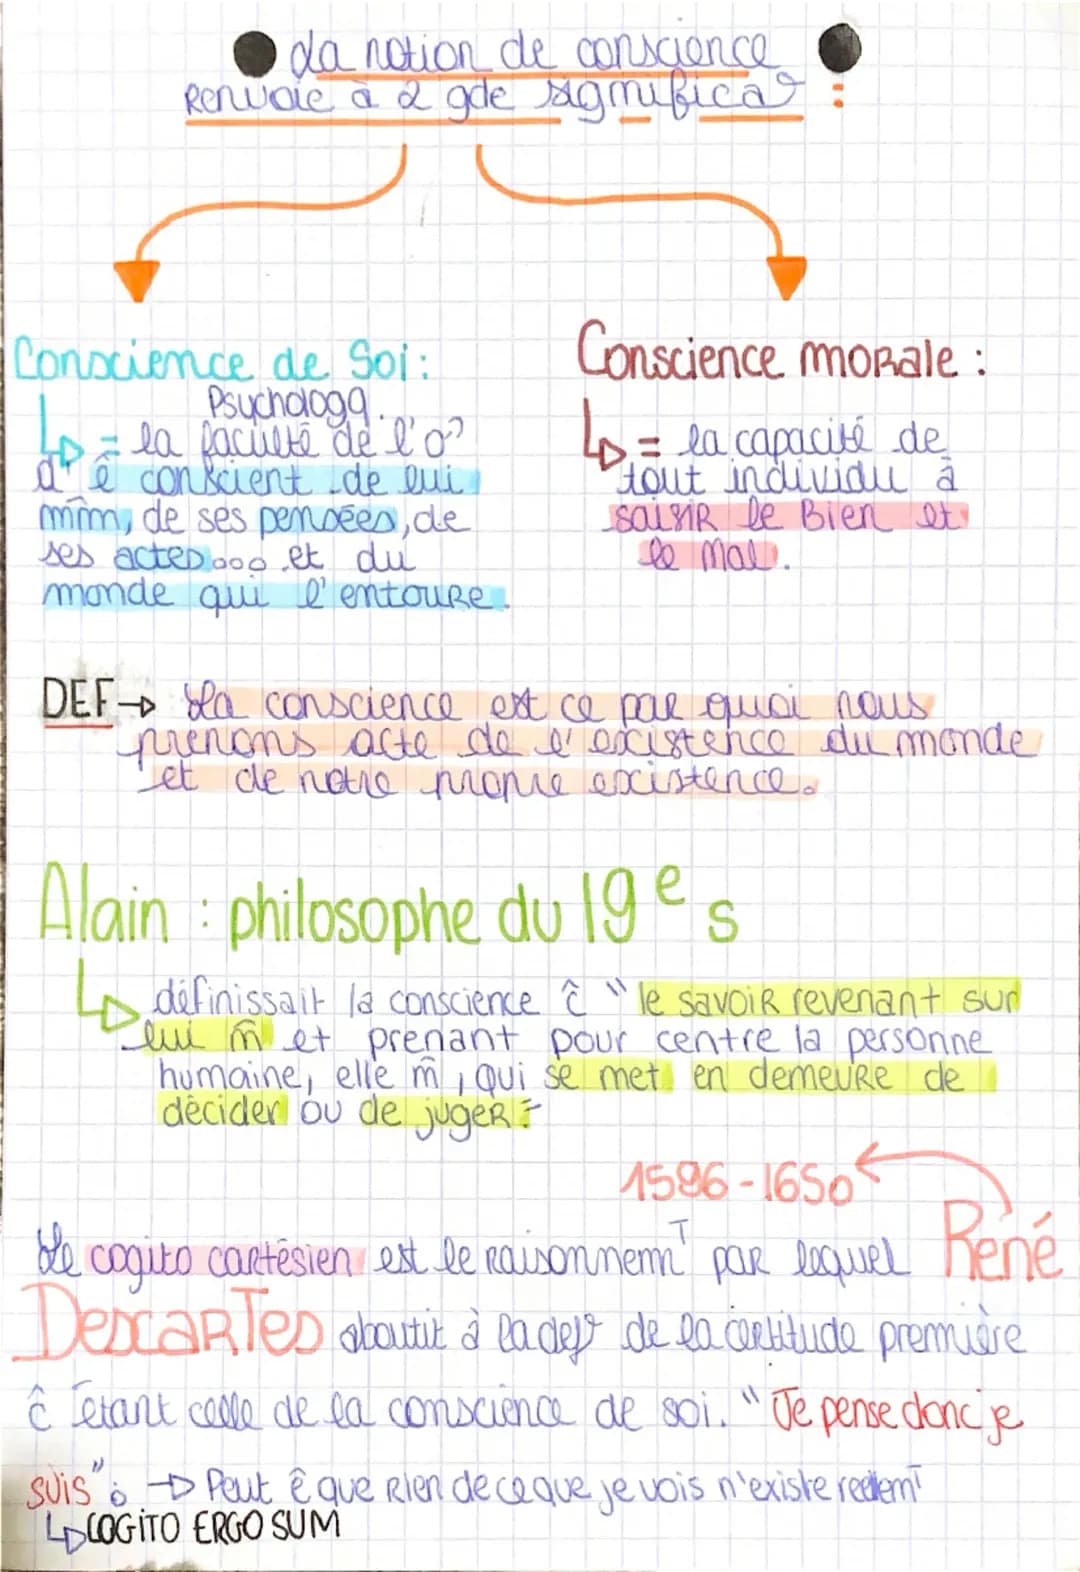 La notion de conscience
Renvoie à 2 gde significa° :
Conscience de Soi :
Psychologq.
= la faculté de l'o?
d' ê conscient de lui
mîm, de ses pensées, de
ses actes... et du
monde qui l'entoure.
Conscience morale :
= la capacité de
tout individu à
saisir le Bien et
le Mal.
DEF → La conscience est ce par quoi nous
prenons acte de l'existence du monde
et de notre propre existence.
Alain : philosophe du 19e s
définissait la conscience ĉ "le savoir revenant sur
lui m̂ et prenant pour centre la personne
humaine, elle m̂, qui se met en demeure de
décider ou de juger"
1596-1650
Le cogito cartésien est le raisonnemT par lequel René
Descartes aboutit à la def° de la certitude première
ĉ étant celle de la conscience de soi. "Je pense donc je
suis" : → Peut ê que Rien de ce que je vois n'existe réellemT
COGITO ERGO SUM